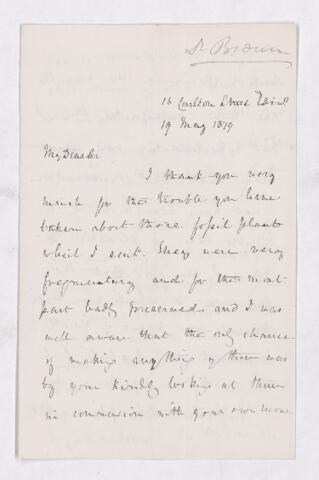 Dr Brown
16 Carlton Street Edinb
19 May 1879
My Dear Sir
I thank you very
much for the trouble you have
taken about those fossil plants
which I sent. They were very
fragmentary and for the most
part badly preserved and I was
well aware that the only chance
of making anything of them was
by your kindly looking at them
in connexion with your own more